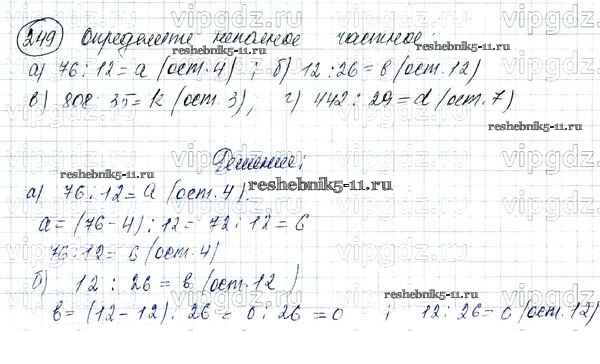 249 Определите неполное частное
а) 76 : 12 = a (ост. 4) ; б) 12 : 26 = в (ост. 12)
в) 808 : 35 = k (ост. 3), г) 442 : 29 = d (ост. 7)
Решение:
а) 76 : 12 = a (ост. 4).
a = (76 - 4) : 12 = 72 : 12 = 6
76 : 12 = 6 (ост. 4)
б) 12 : 26 = в (ост. 12)
в = (12 - 12) : 26 = 0 : 26 = 0 ; 12 : 26 = 0 (ост. 12)
vipgdz.ru
reshebnik5-11.ru
reshebnik5-11.ru
reshebnik5-11.ru
reshebnik5-11.ru